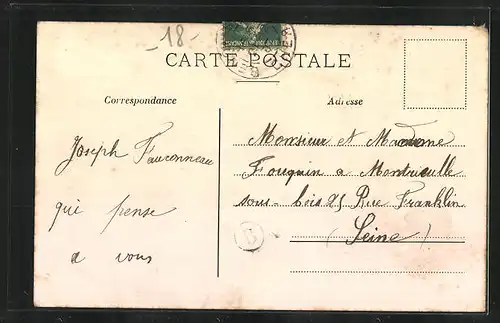 -18-
CARTE POSTALE
Correspondance
Adresse
Joseph Fauconneau
qui pense
a vous
Monsieur et Madame
Fouquin a Montrieulle
sous-bois 25 Rue Franklin
(Seine)
B